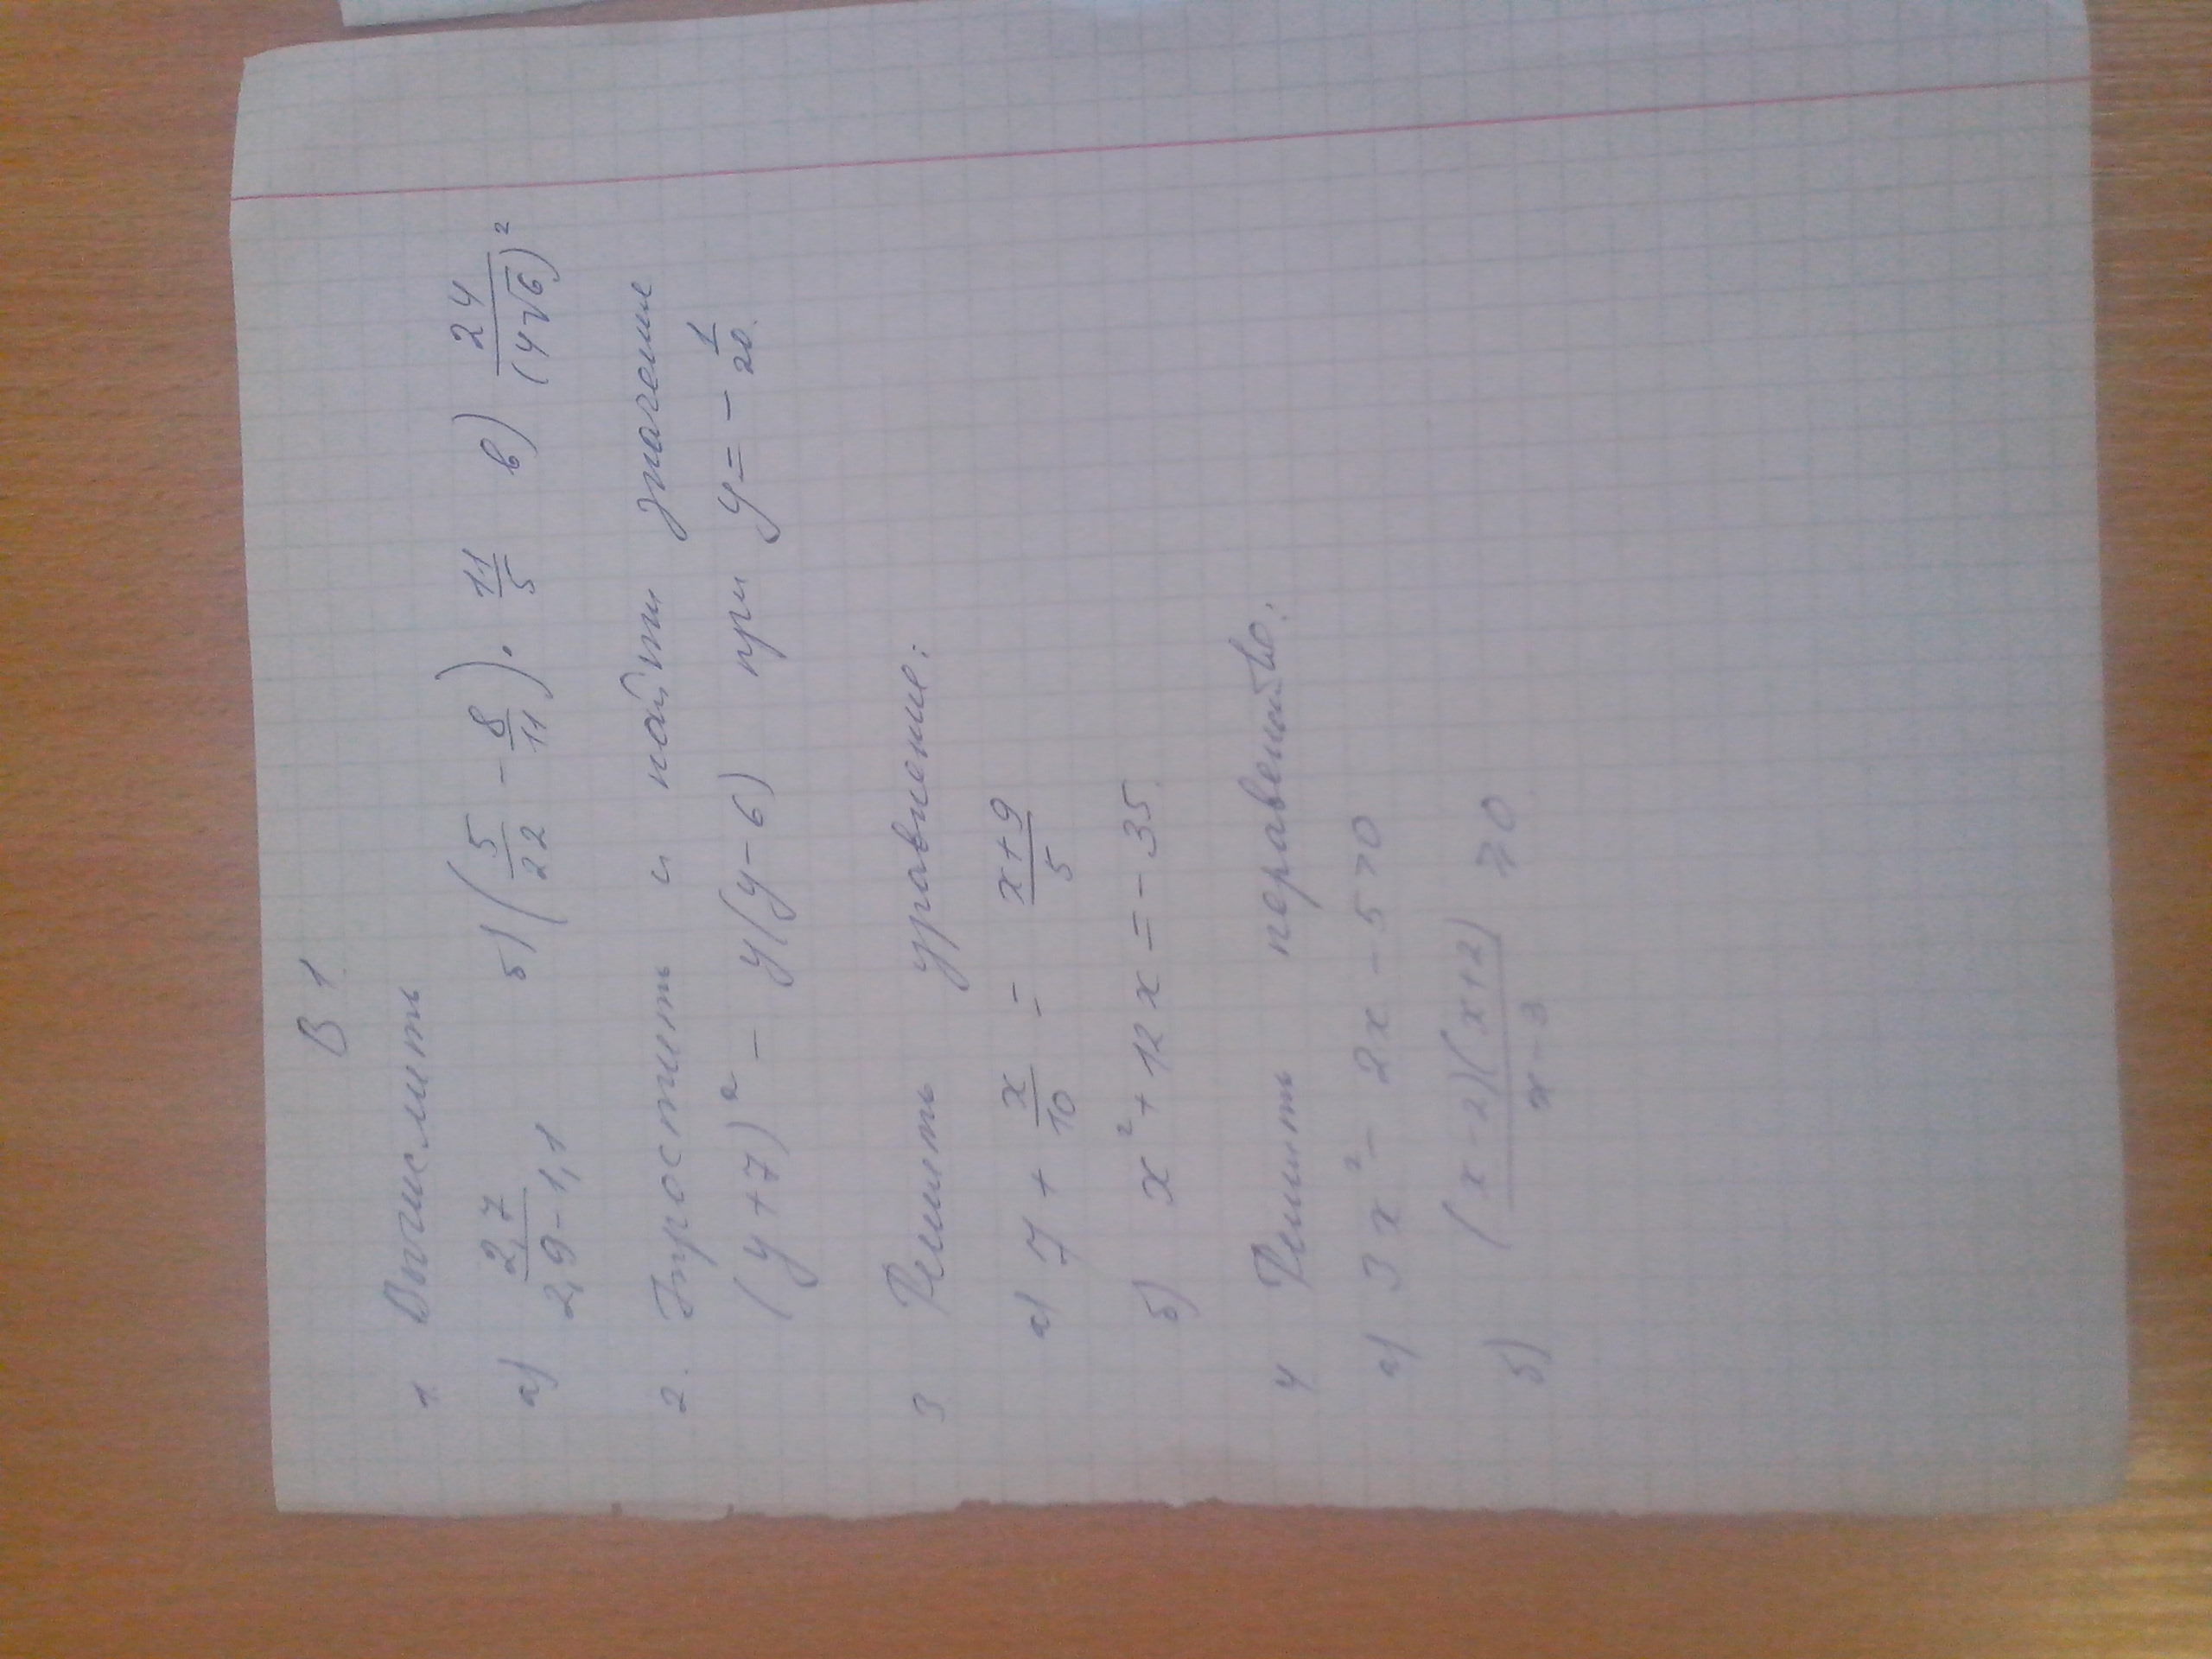 В 1
1. Вычислить
а) 2,7/(2,9-1,1) б) (5/22 - 8/11) · 11/5 в) 24/(4√6)²
2. Упростить и найти значение
(y+7)² - y(y-6) при y = - 1/20.
3 Решить уравнение:
а) 7 + x/10 = (x+9)/5
б) x² + 12x = -35.
4 Решить неравенство:
а) 3x² - 2x - 5 > 0
б) (x-2)(x+2)/(x-3) ⩾ 0